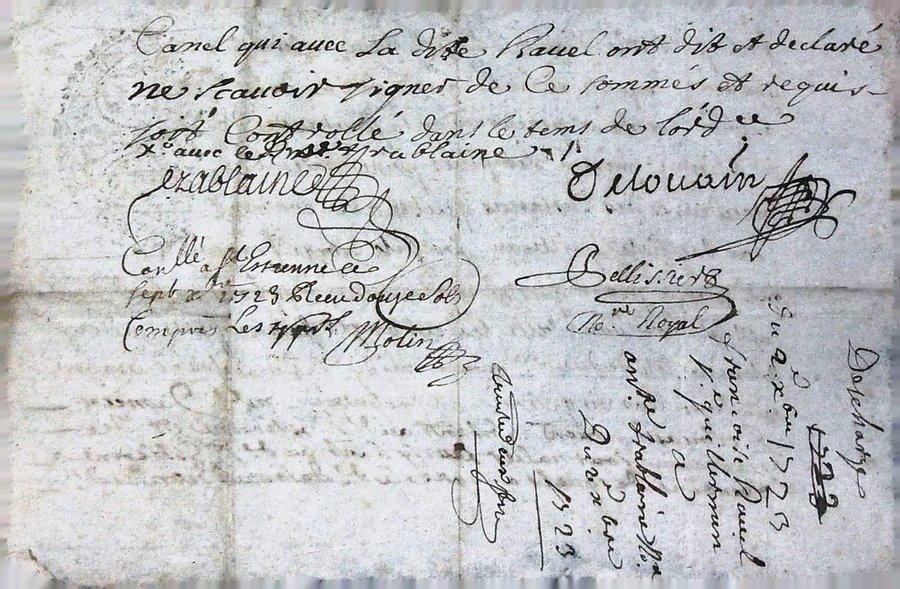 Canel qui avec La dite Ravel ont dit et declaré
ne scavoir signer de Ce sommés et requis
soit Controllé dans le tems de lord ce
avec led trablaine
trablaine
Delouain
Conllé a st Estienne ce
sept xbre 1723 Receu douze sols
Compris Les
Molin
Pellissier
No re Royal
Descharge
1723
Du 2 xbre 1723
francoise Ravel
a
ant trablaine No
Du 2 xbre
1723